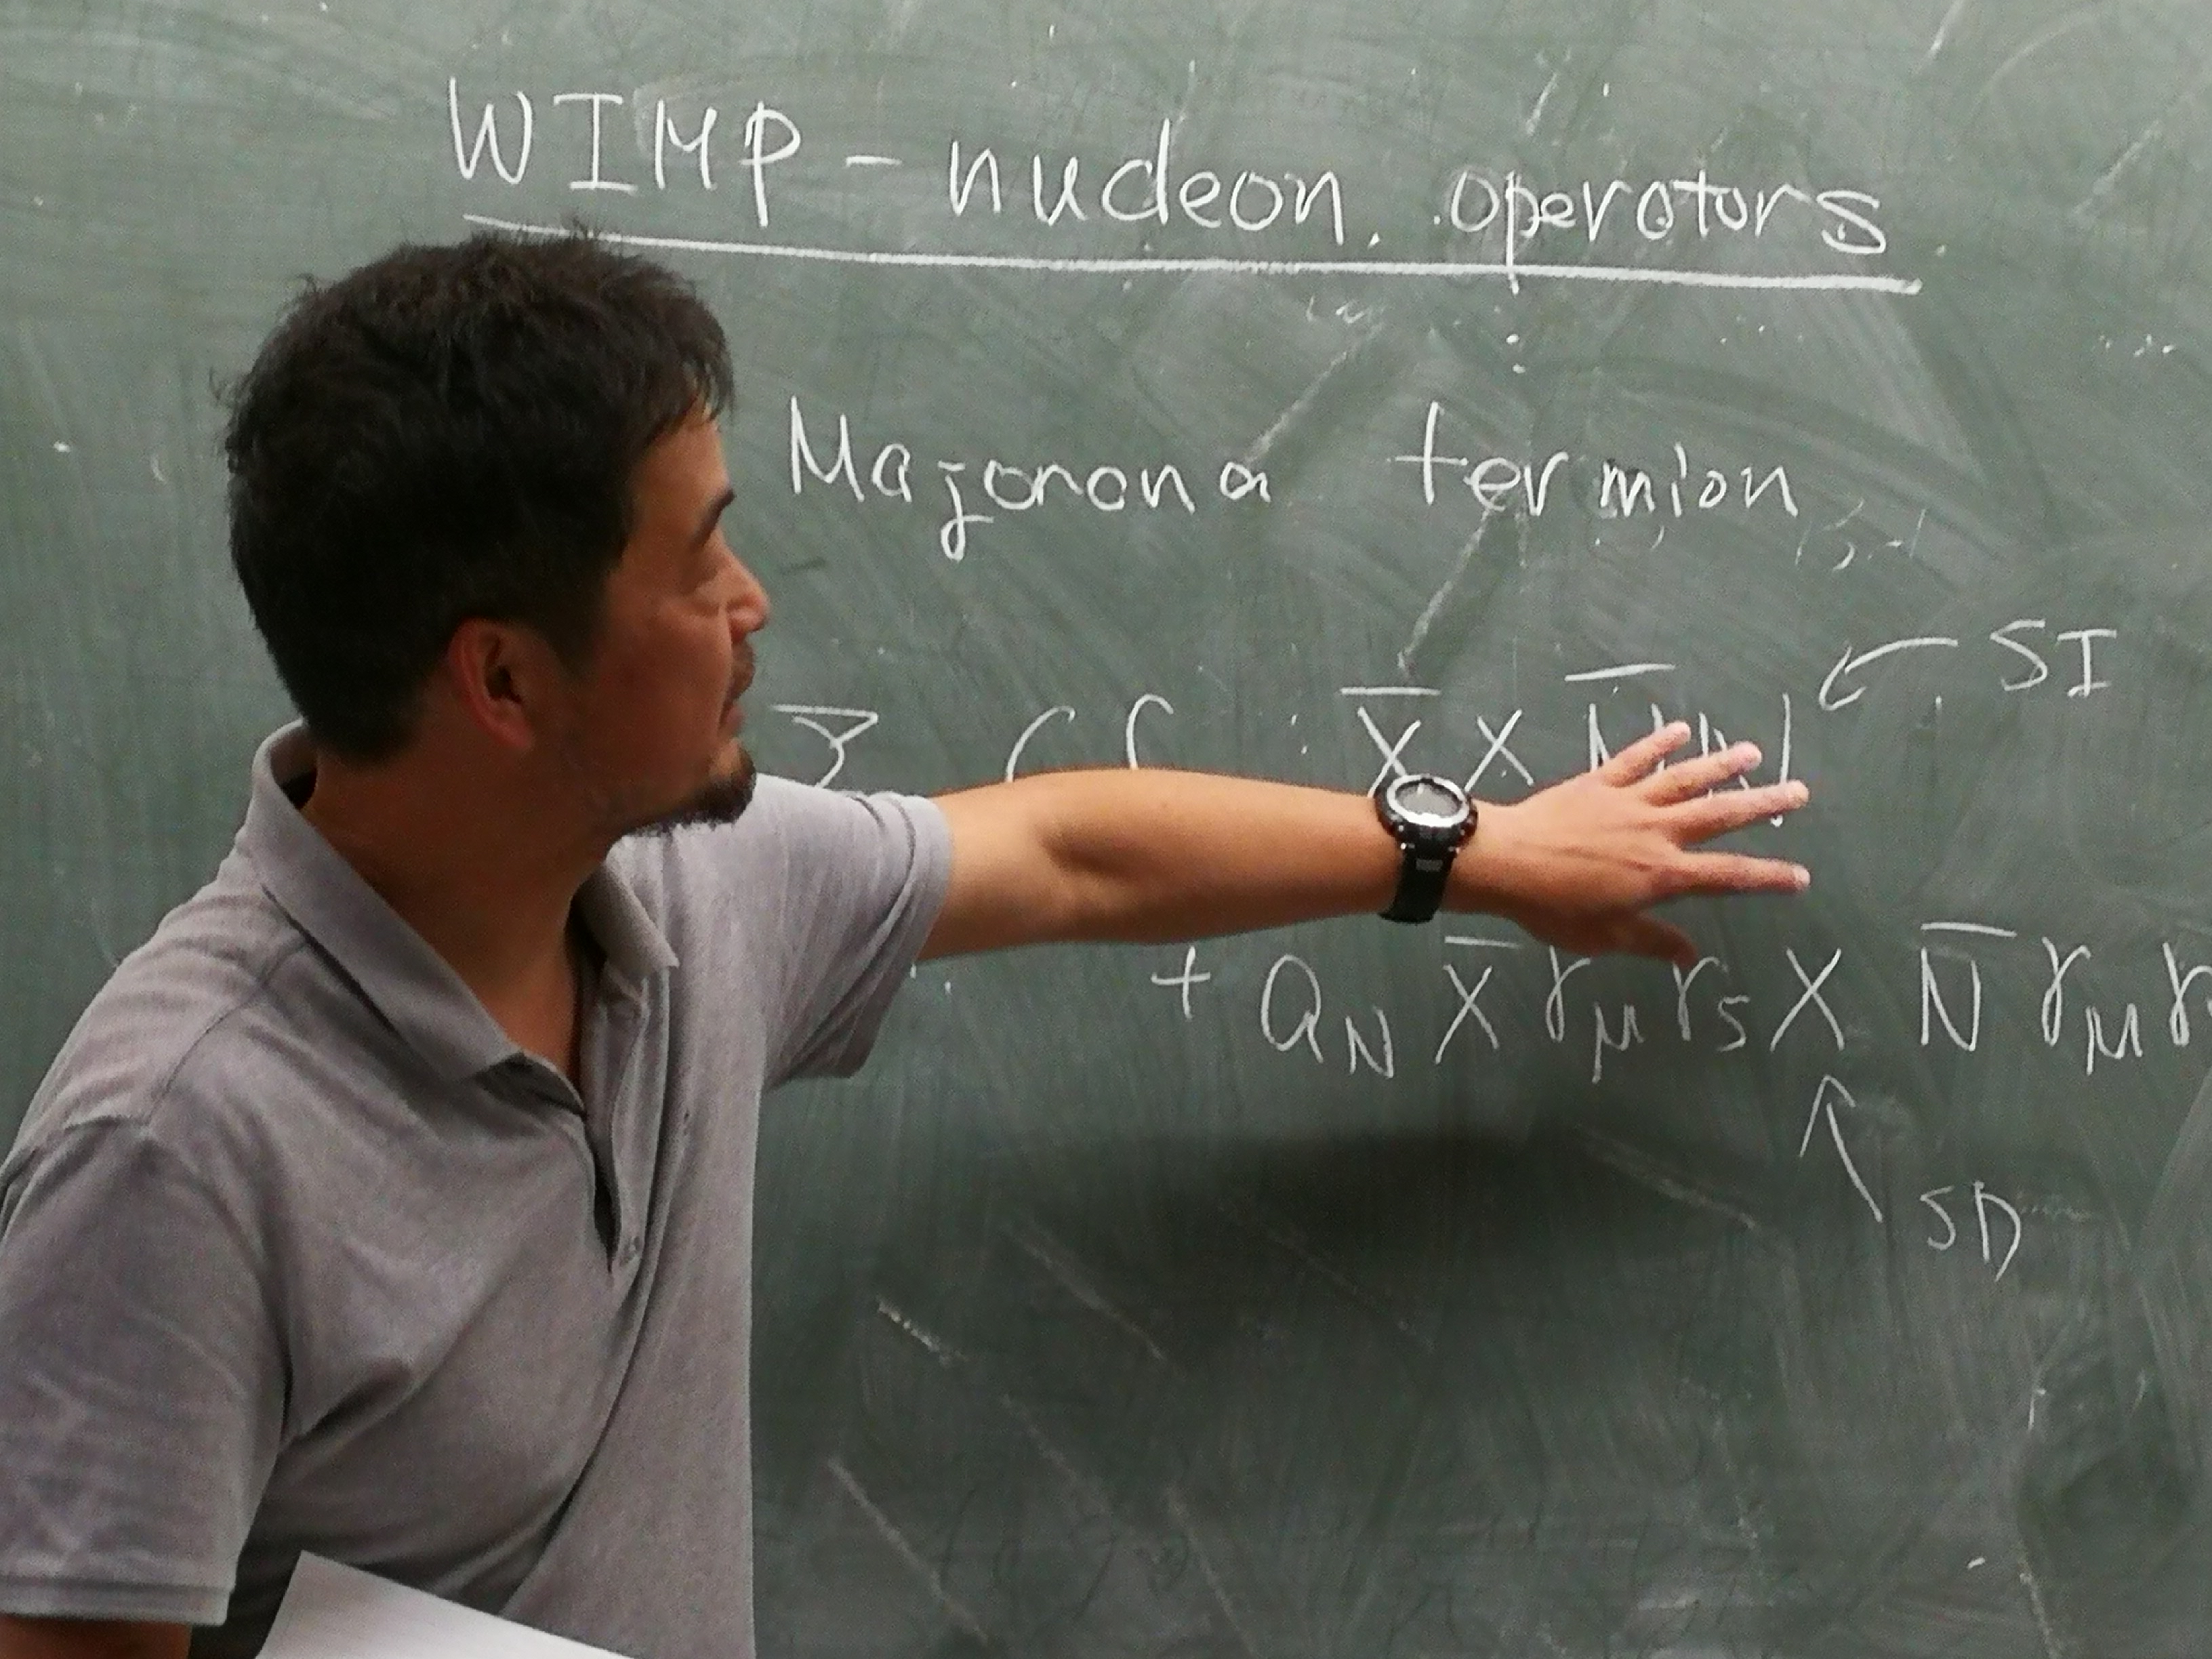 WIMP - nucleon operators
Majorana fermion
Σ ( f χ̄ χ N̄ N ← SI
+ a_N χ̄ γ_μ γ_5 χ N̄ γ_μ γ
↑ SD